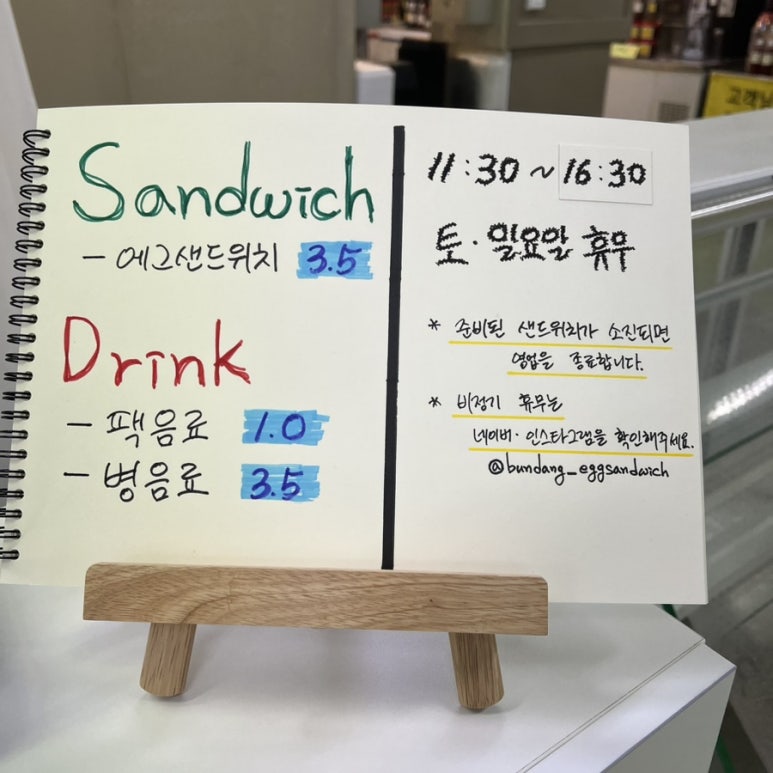 Sandwich
- 에그샌드위치 3.5
Drink
- 팩음료 1.0
- 병음료 3.5
11:30 ~ 16:30
토·일요일 휴무
* 준비된 샌드위치가 소진되면
영업을 종료합니다.
* 비정기 휴무는
네이버·인스타그램을 확인해주세요.
@bundang_eggsandwich
고객님